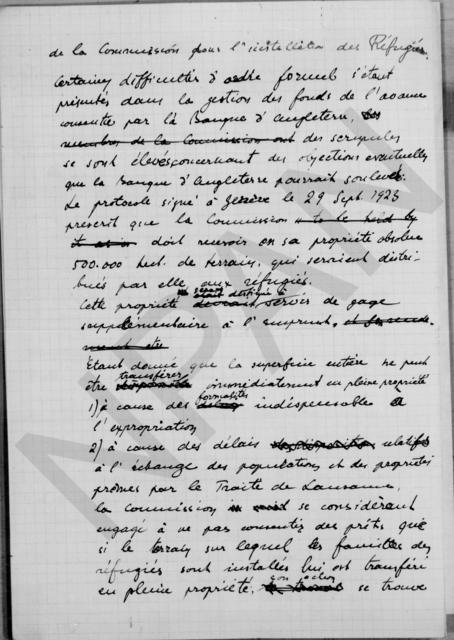 de la Commission pour l'installation des Réfugiés.
Certaines difficultés d'ordre formel s'étant
présentés dans la gestion des fonds de l'avance
consentie par la Banque d'Angleterre, les
membres de la Commission ont des scrupules
se sont élevés concernant des objections éventuelles
que la Banque d'Angleterre pourrait soulever.
Le protocole signé à Genève le 29 Sept. 1923
prescrit que la Commission to be held by
it as in doit recevoir en sa propriété absolue
500.000 hect. de terrains, qui seraient distri-
bués par elle aux réfugiés.
Cette propriété étant destinée à devant servir de gage
supplémentaire à l'emprunt,
Etant donné que la superficie entière ne peut
transférer
être immédiatement en pleine propriété
formalités
1) à cause des délais indispensable à
l'expropriation
2) à cause des délais relatifs
à l'échange des populations et des propriétés
par le Traité de Lausanne,
la Commission se considérant
engagé à ne pas consentir des prêts que
si le terrain sur lequel les familles des
réfugiés sont installés lui est transféré
en pleine propriété, son action se trouve
NPAN